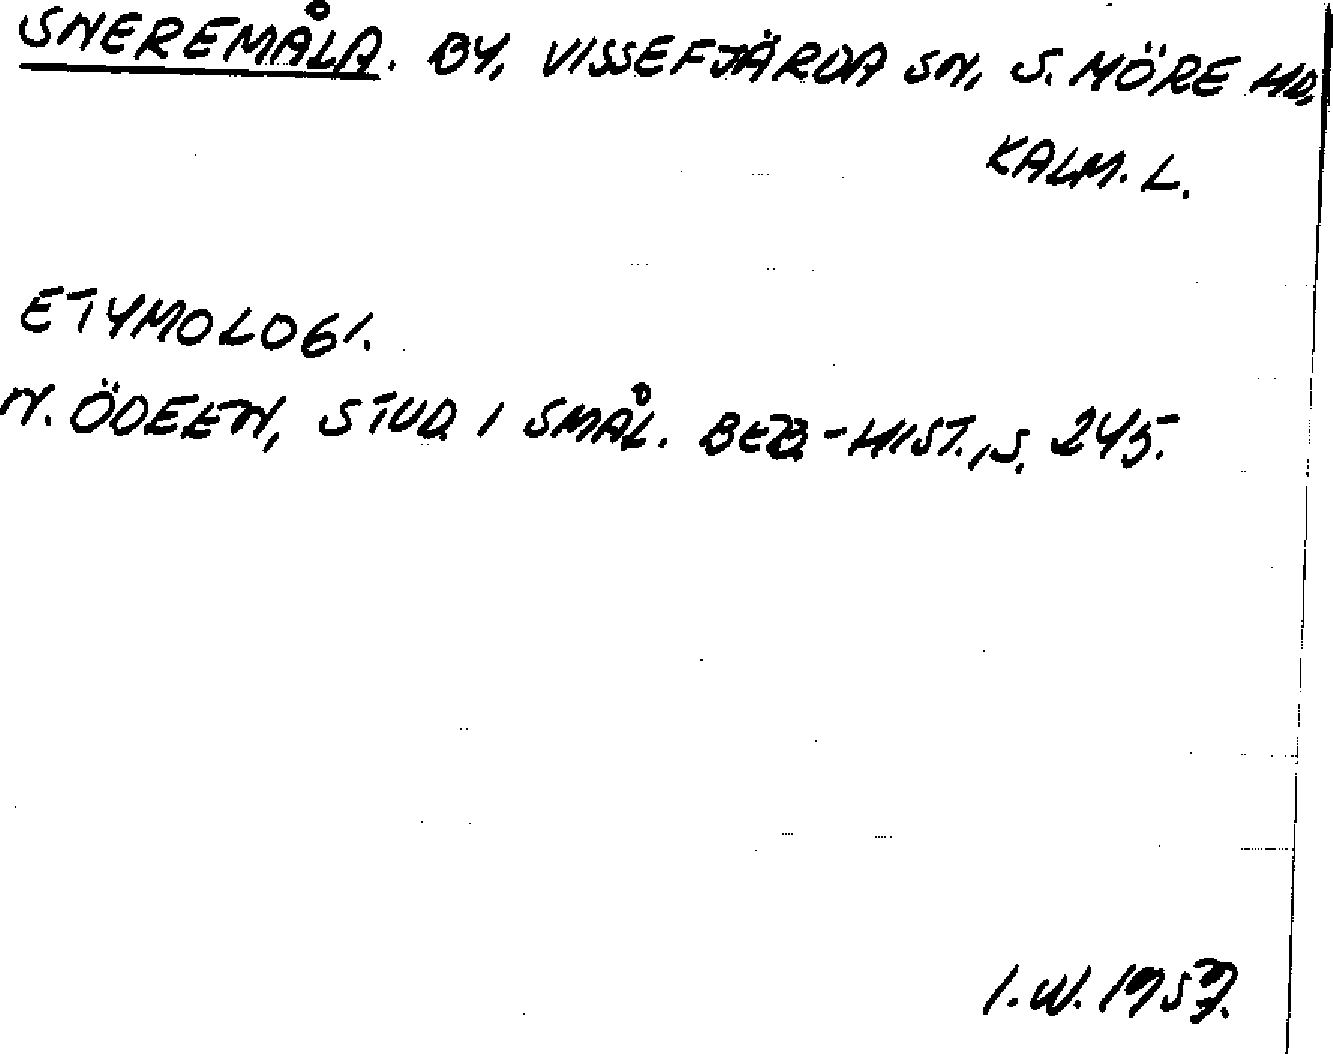 SNEREMÅLA. BY, VISSEFJÄRDA SN, S. MÖRE HD,
KALM. L.
ETYMOLOGI.
N. ÖDEEN, STUD. I SMÅL. BEB.-HIST., S. 245.
I.W. 1957.